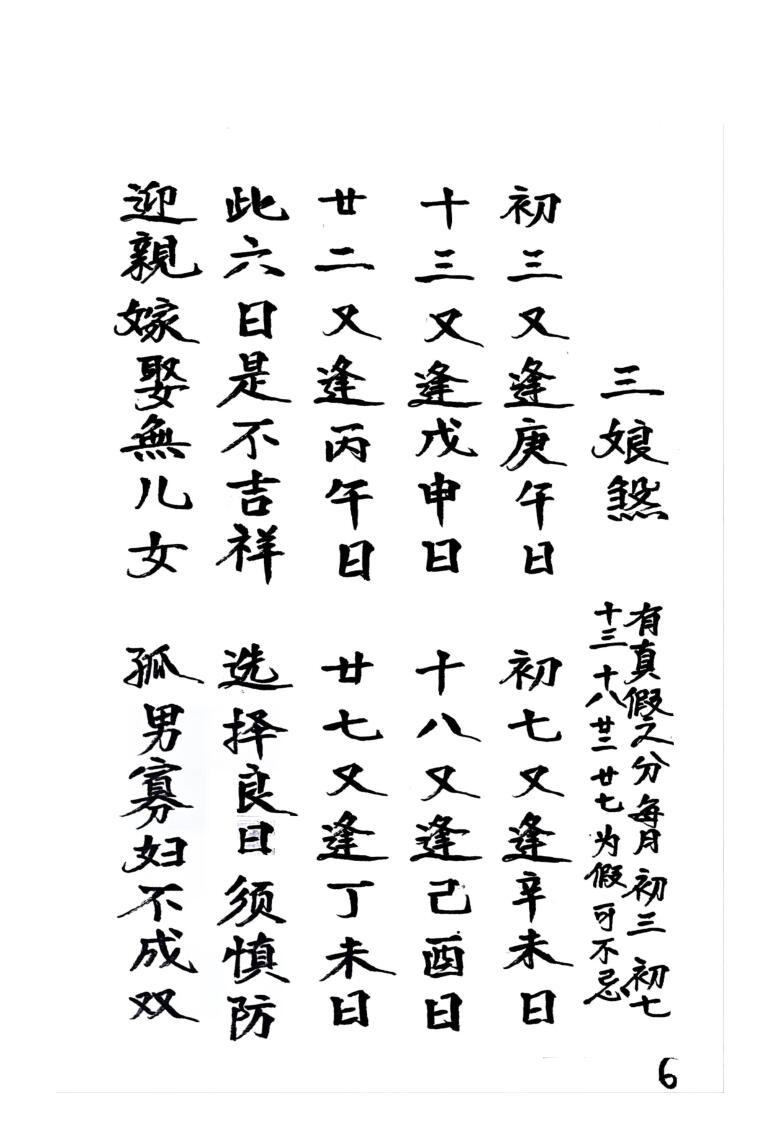 三娘煞
有真假之分每月初三 初七
十三 十八 廿二 廿七 为假可不忌
初三又逢庚午日 初七又逢辛未日
十三又逢戊申日 十八又逢己酉日
廿二又逢丙午日 廿七又逢丁未日
此六日是不吉祥 选择良日须慎防
迎親嫁娶無儿女 孤男寡妇不成双
6